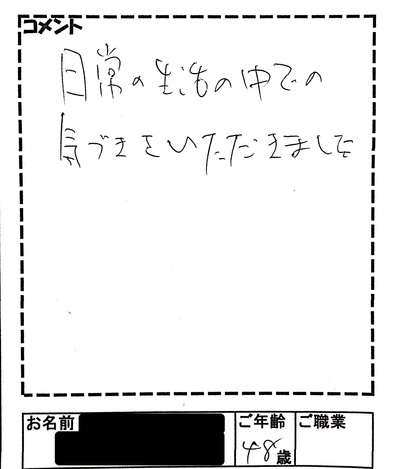 コメント
日常の生活の中での
気づきをいただきました
お名前
ご年齢
48歳
ご職業